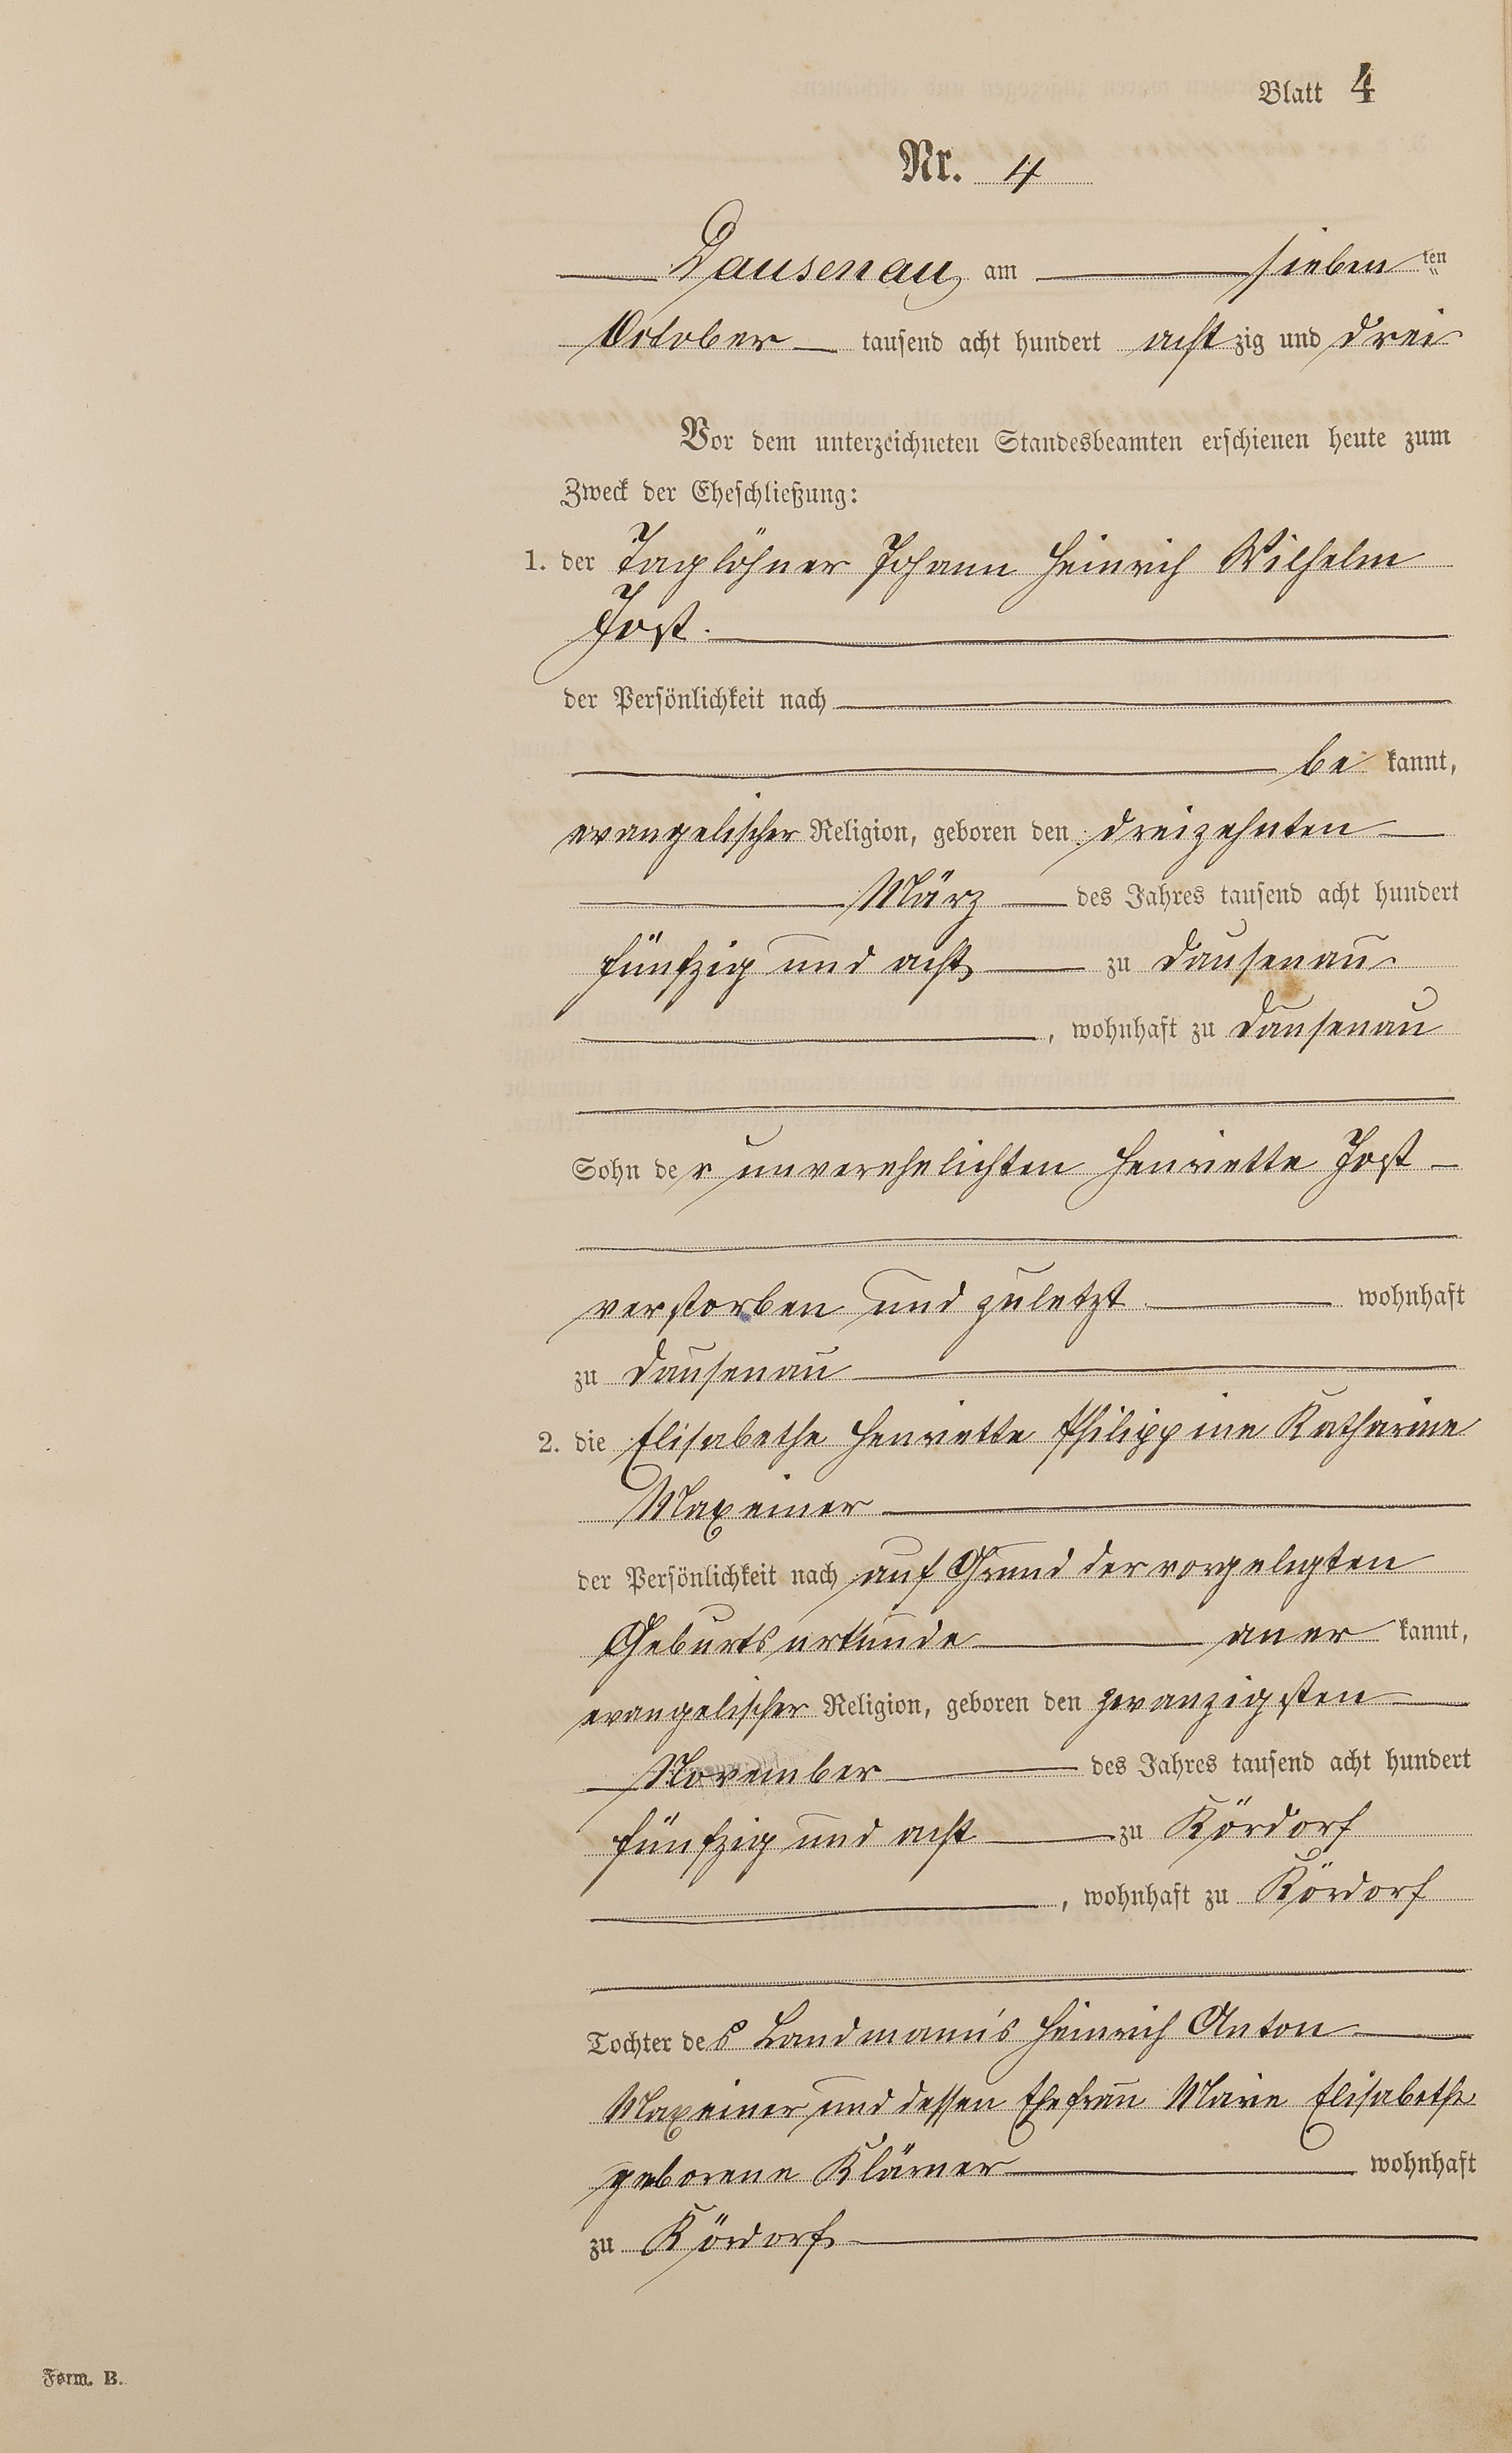 Blatt 4
Nr. 4
Dausenau, am sieben ten
October tausend acht hundert acht zig und drei
Vor dem unterzeichneten Standesbeamten erschienen heute zum
Zweck der Eheschließung:
1. der Taglöhner Johann Heinrich Wilhelm
Jost.
der Persönlichkeit nach
be kannt,
evangelischer Religion, geboren den dreizehnten
März des Jahres tausend acht hundert
fünfzig und acht zu Dausenau
, wohnhaft zu Dausenau
Sohn der unverehelichten Henriette Jost
verstorben und zuletzt wohnhaft
zu Dausenau
2. die Elisabethe Henriette Philippine Katharine
Maxeiner
der Persönlichkeit nach auf Grund der vorgelegten
Geburtsurkunde aner kannt,
evangelischer Religion, geboren den zwanzigsten
November des Jahres tausend acht hundert
fünfzig und acht zu Kördorf
, wohnhaft zu Kördorf
Tochter des Landmann's Heinrich Anton
Maxeiner und dessen Ehefrau Marie Elisabethe
geborene Klärner wohnhaft
zu Kördorf
Form. B.